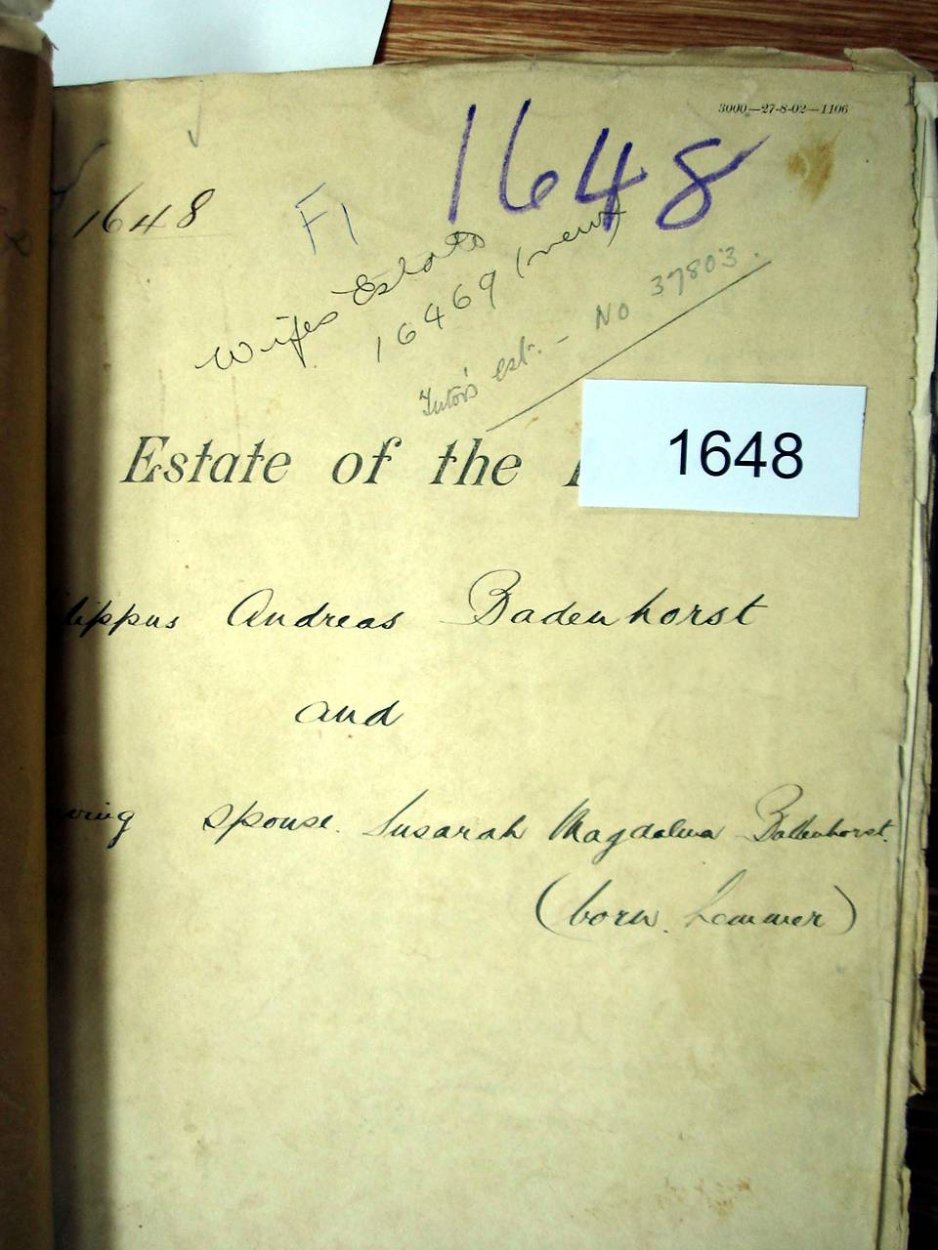 3000—27-8-02—1106
1648
1648
F1
Wifes Estate
16469 (new)
Tutor's est. - No 37803.
1648
Estate of the
lippus Andreas Badenhorst
and
ving spouse. Susarah Magdalena Badenhorst.
(born Lemmer)